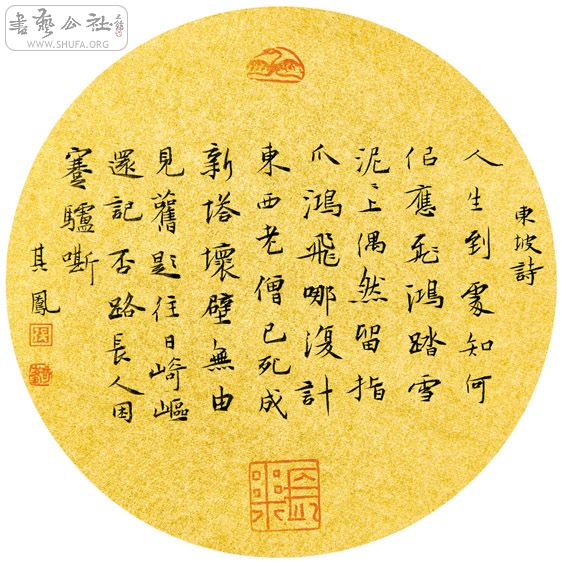 書藝公社
WWW.SHUFA.ORG
東坡詩
人生到處知何
佀應飛鴻踏雪
泥〻上偶然留指
爪鴻飛哪復計
東西老僧已死成
新塔壞壁無由
見舊題往日崎嶇
還記否路長人困
蹇驢嘶
其鳳